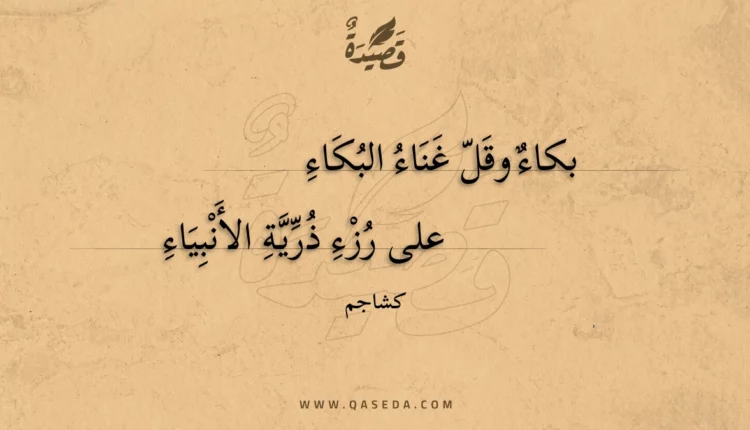 قَصِيدَةٌ
بكاءٌ وقَلّ غَنَاءُ البُكَاءِ
على رُزْءِ ذُرِّيَّةِ الأَنْبِيَاءِ
كشاجم
WWW.QASEDA.COM